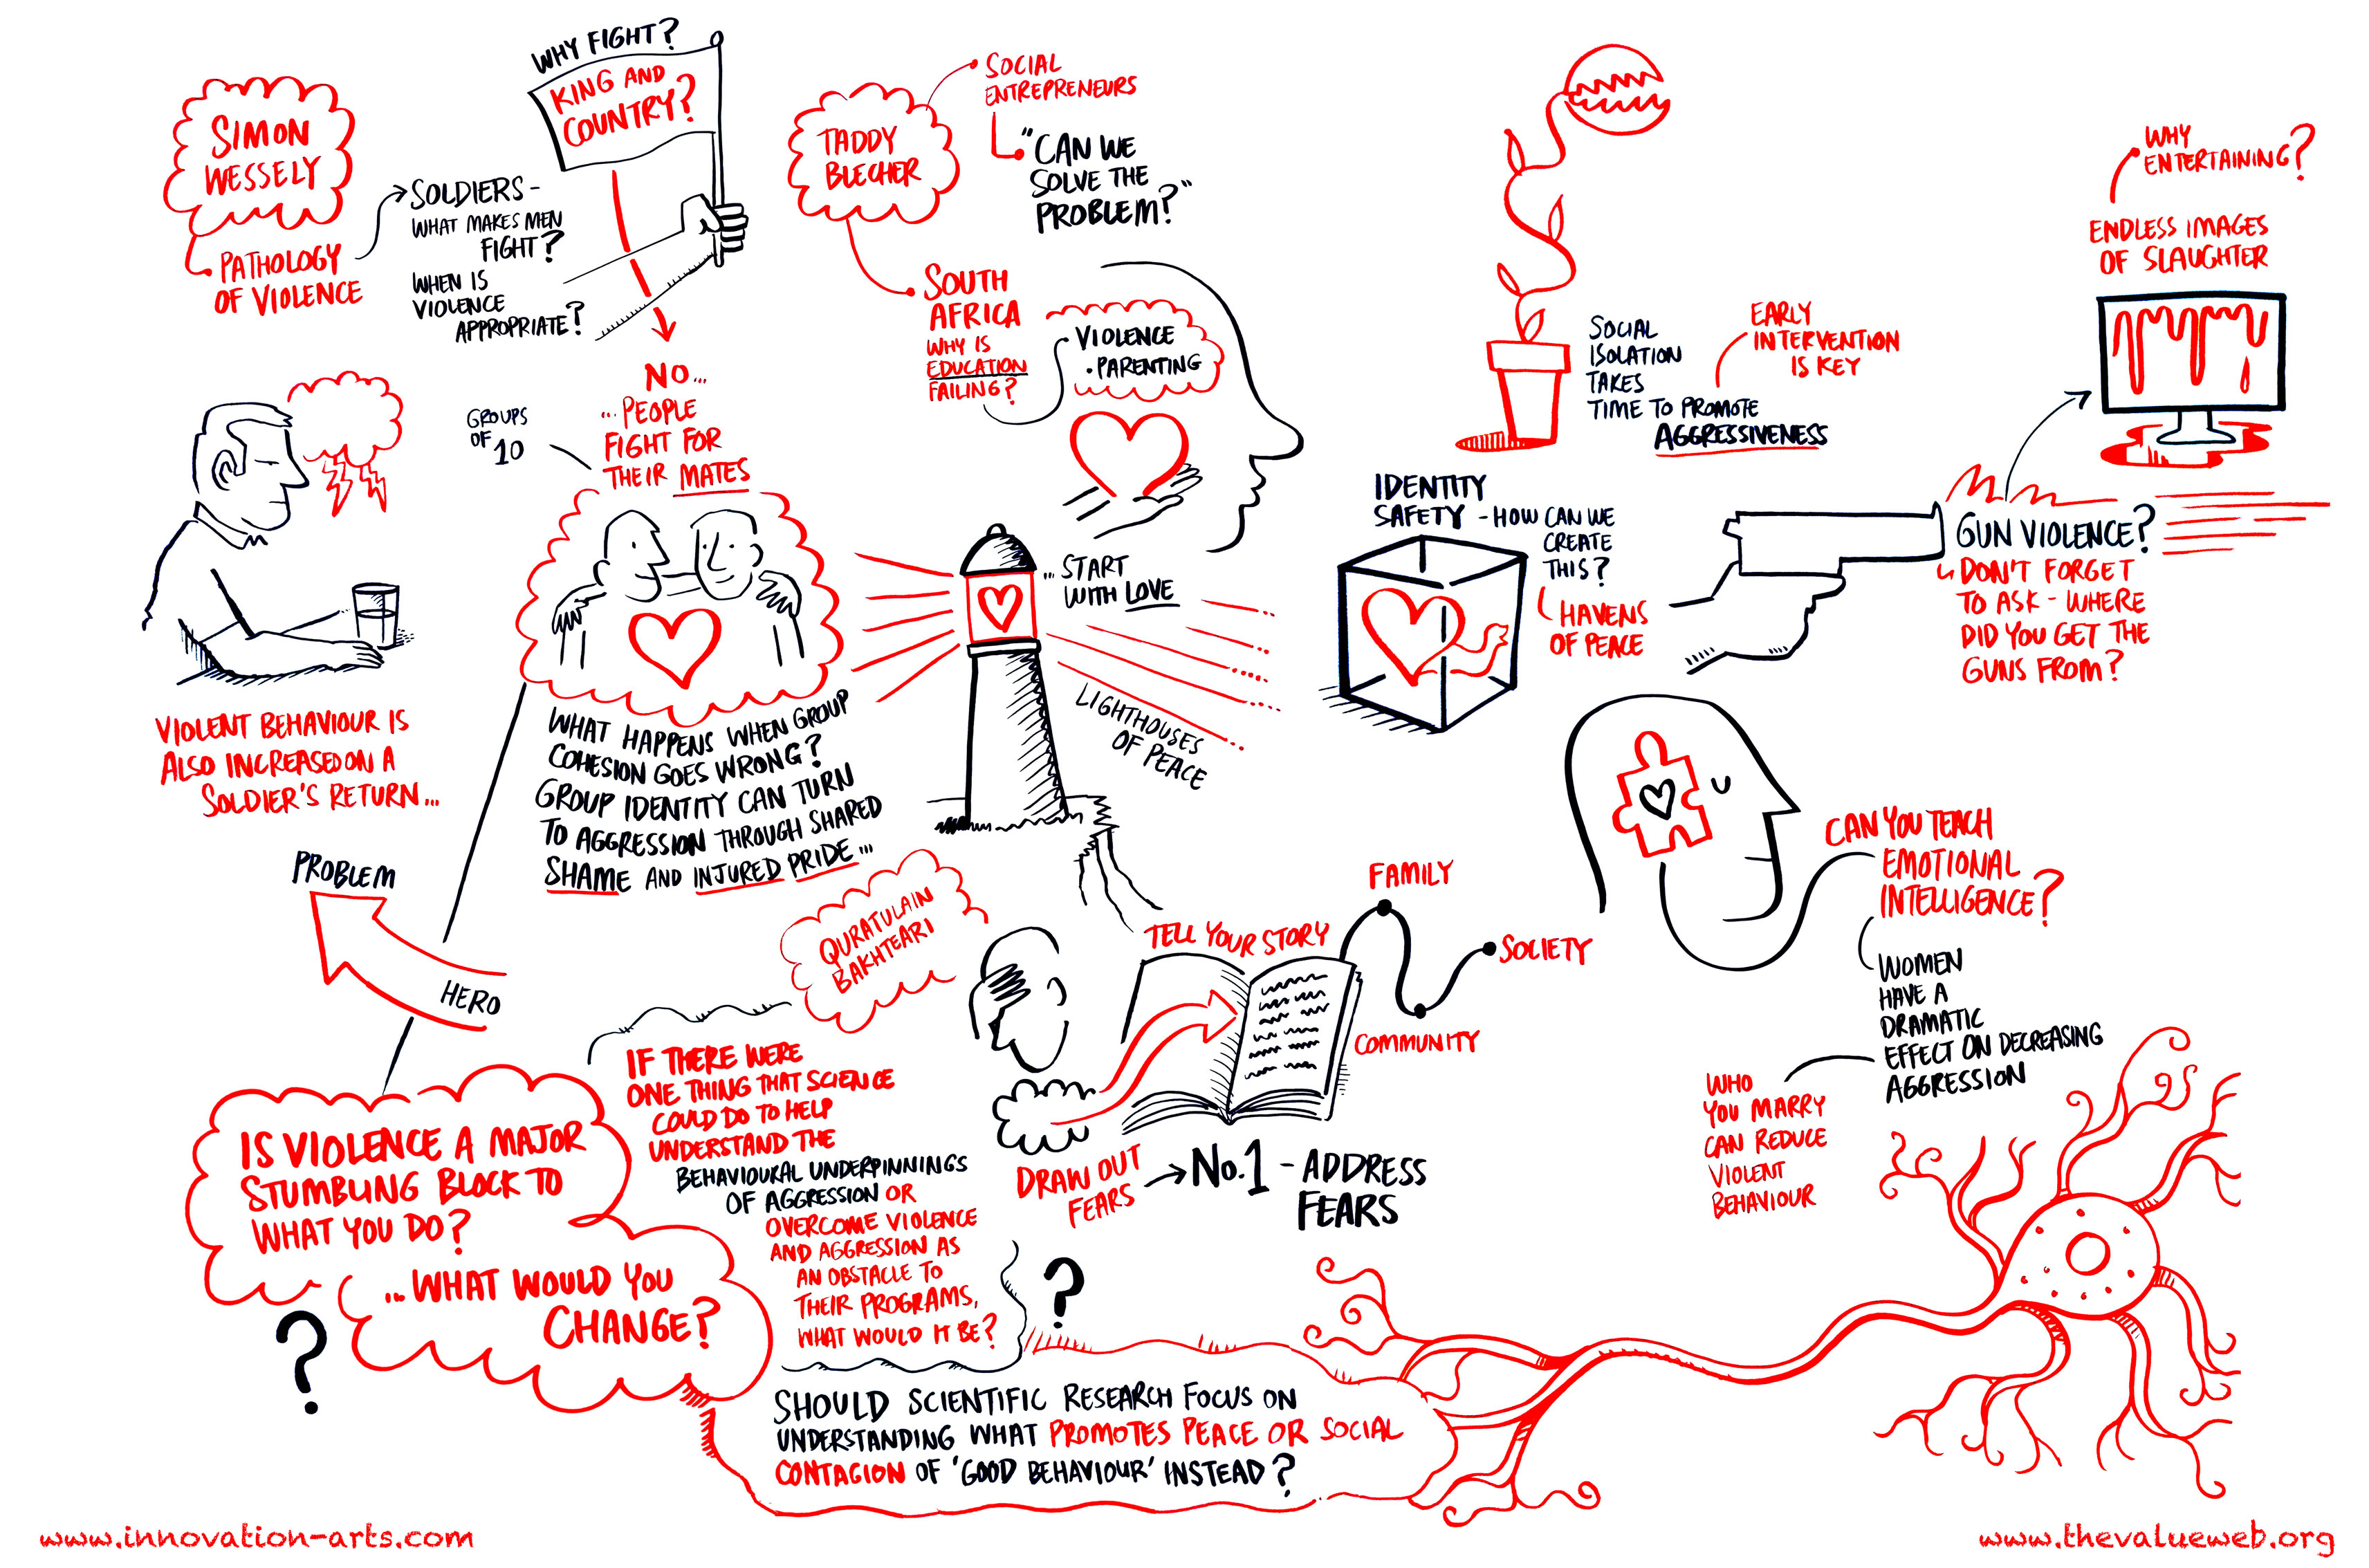 SIMON
WESSELY
PATHOLOGY
OF VIOLENCE
SOLDIERS -
WHAT MAKES MEN
FIGHT?
WHEN IS
VIOLENCE
APPROPRIATE?
WHY FIGHT?
KING AND
COUNTRY?
NO...
... PEOPLE
FIGHT FOR
THEIR MATES
GROUPS
OF 10
VIOLENT BEHAVIOUR IS
ALSO INCREASED ON A
SOLDIER'S RETURN...
WHAT HAPPENS WHEN GROUP
COHESION GOES WRONG?
GROUP IDENTITY CAN TURN
TO AGGRESSION THROUGH SHARED
SHAME AND INJURED PRIDE...
PROBLEM
HERO
IS VIOLENCE A MAJOR
STUMBLING BLOCK TO
WHAT YOU DO?
...WHAT WOULD YOU
CHANGE?
?
TADDY
BLECHER
SOCIAL
ENTREPRENEURS
"CAN WE
SOLVE THE
PROBLEM?"
SOUTH
AFRICA
WHY IS
EDUCATION
FAILING?
VIOLENCE
• PARENTING
... START
WITH LOVE
LIGHTHOUSES
OF PEACE
QURATULAIN
BAKHTEARI
IF THERE WERE
ONE THING THAT SCIENCE
COULD DO TO HELP
UNDERSTAND THE
BEHAVIOURAL UNDERPINNINGS
OF AGGRESSION OR
OVERCOME VIOLENCE
AND AGGRESSION AS
AN OBSTACLE TO
THEIR PROGRAMS,
WHAT WOULD IT BE?
?
TELL YOUR STORY
FAMILY
SOCIETY
COMMUNITY
DRAW OUT
FEARS
No.1 - ADDRESS
FEARS
SHOULD SCIENTIFIC RESEARCH FOCUS ON
UNDERSTANDING WHAT PROMOTES PEACE OR SOCIAL
CONTAGION OF 'GOOD BEHAVIOUR' INSTEAD?
SOCIAL
ISOLATION
TAKES
TIME TO PROMOTE
AGGRESSIVENESS
EARLY
INTERVENTION
IS KEY
IDENTITY
SAFETY - HOW CAN WE
CREATE
THIS?
HAVENS
OF PEACE
WHY
ENTERTAINING?
ENDLESS IMAGES
OF SLAUGHTER
GUN VIOLENCE?
DON'T FORGET
TO ASK - WHERE
DID YOU GET THE
GUNS FROM?
CAN YOU TEACH
EMOTIONAL
INTELLIGENCE?
WOMEN
HAVE A
DRAMATIC
EFFECT ON DECREASING
AGGRESSION
WHO
YOU MARRY
CAN REDUCE
VIOLENT
BEHAVIOUR
www.innovation-arts.com
www.thevalueweb.org